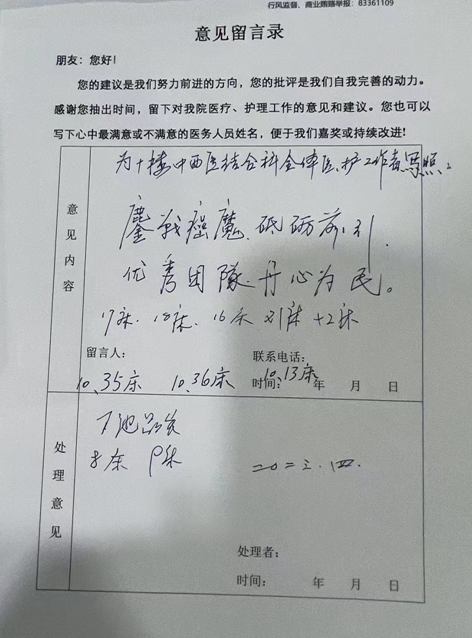 行风监督、商业贿赂举报：83361109
意见留言录
朋友：您好！
您的建议是我们努力前进的方向，您的批评是我们自我完善的动力。
感谢您抽出时间，留下对我院医疗、护理工作的意见和建议。您也可以
写下心中最满意或不满意的医务人员姓名，便于我们嘉奖或持续改进！
意见内容
为十楼中西医结合科全体医、护工作者写照：
鏖战癌魔、砥砺前引
优秀团隊、丹心为民。
17床、18床、16床 21床 +2床
留言人： 联系电话：
10、35床 10、36床 10、13床
时间： 年 月 日
处理意见
8床 9床
二〇二三.四.
处理者：
时间： 年 月 日